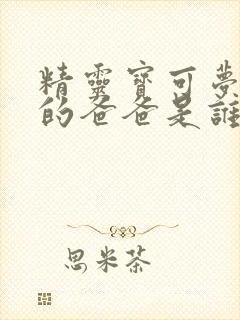 精靈寶可夢
的爸爸是誰
思米茶